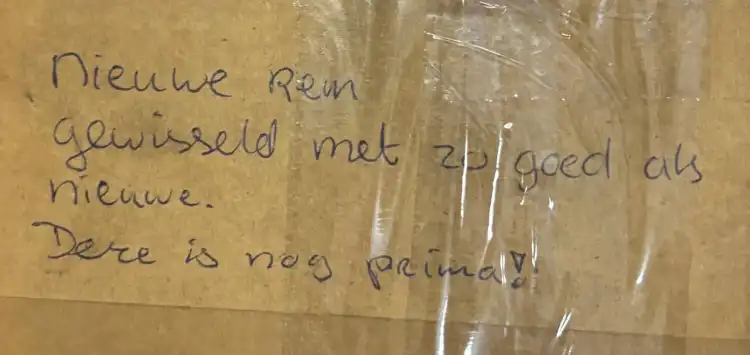 Nieuwe Rem
gewisseld met zo goed als
nieuwe.
Deze is nog prima!